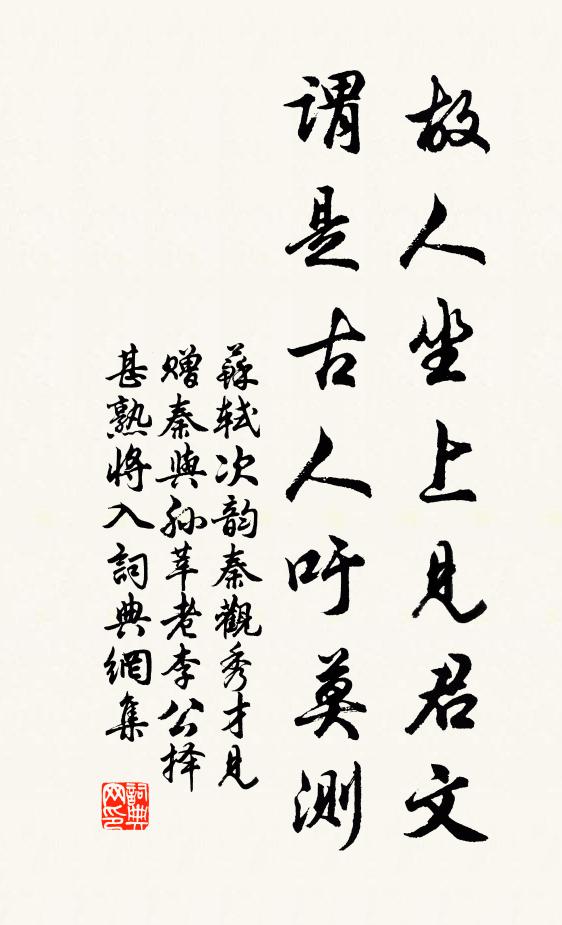 故人坐上見君文
謂是古人吁莫測
蘇軾次韵秦觀秀才見
贈秦與孙莘老李公择
甚熟將入詞典網集
詞典
网印